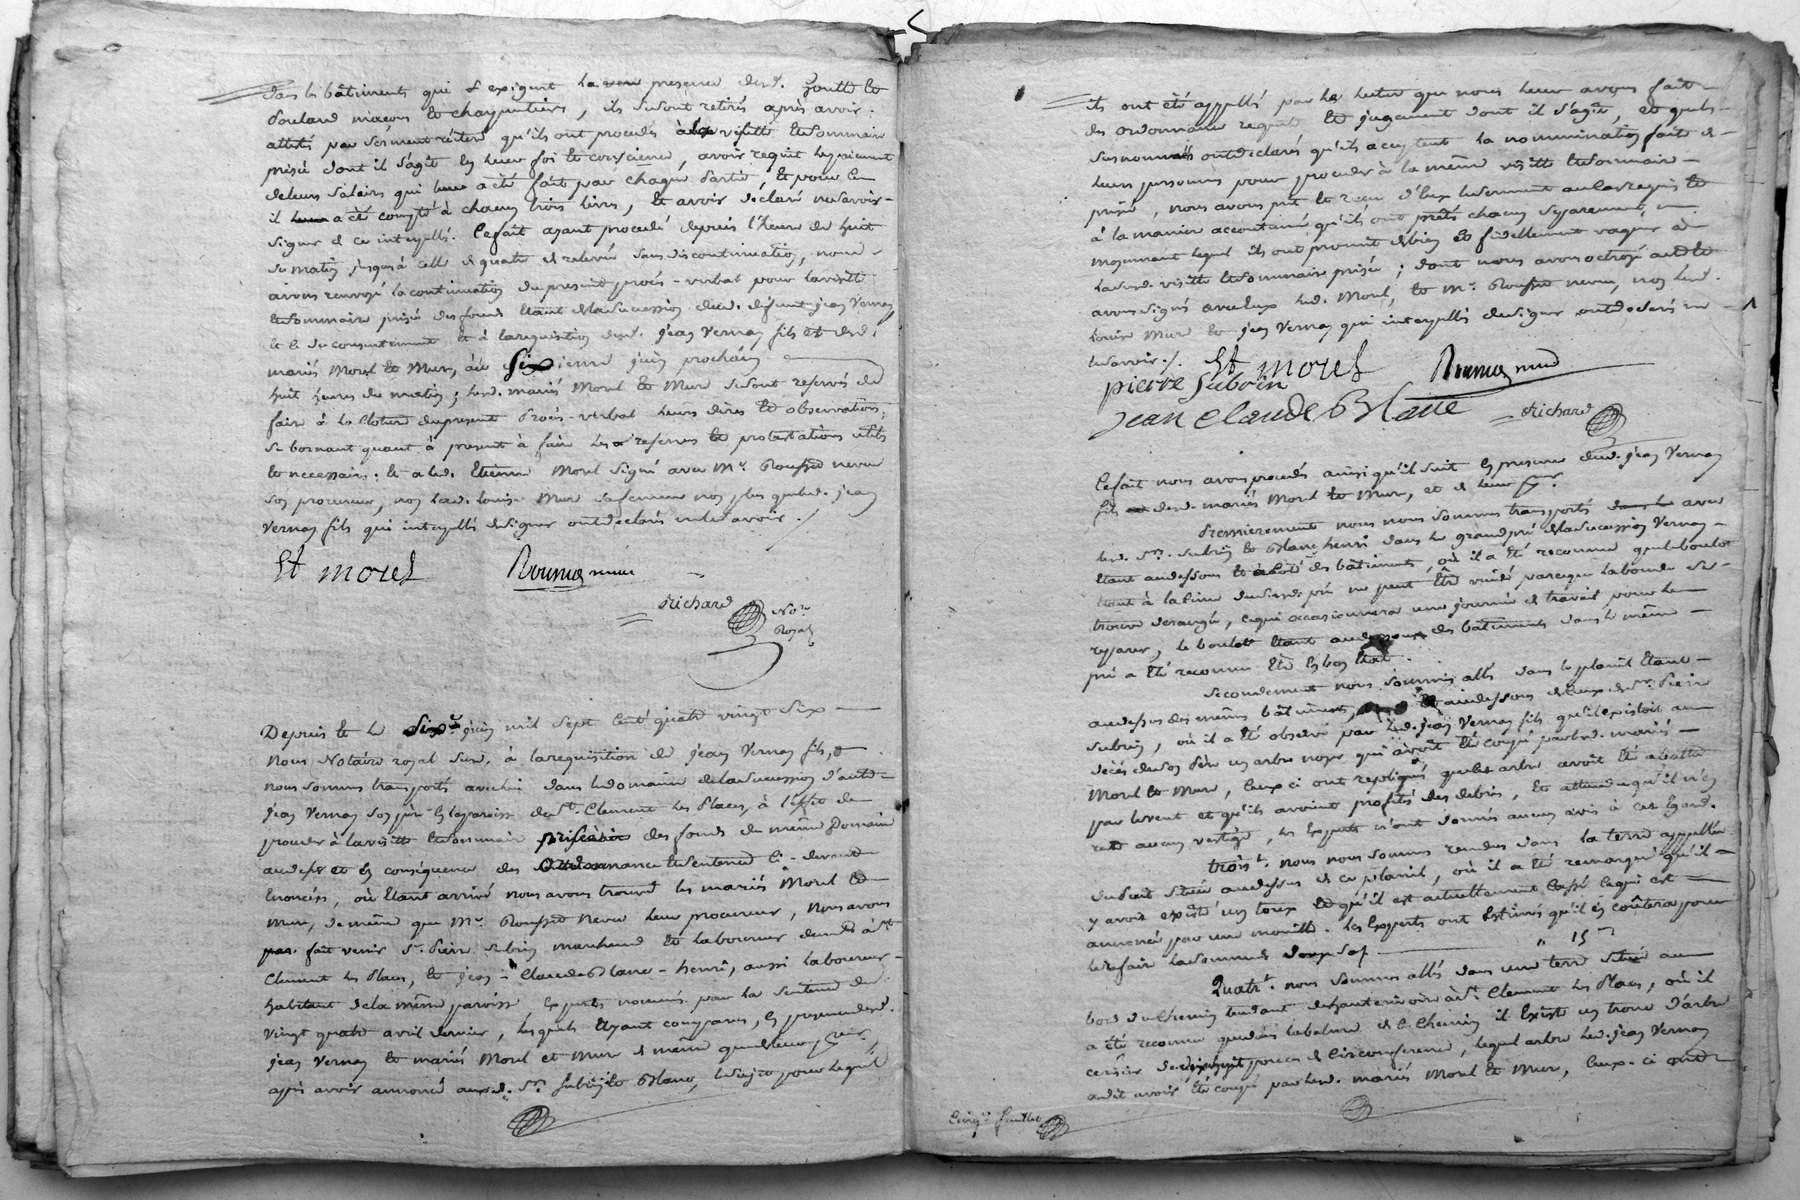 dans les bâtiments qui exigent la presence desd. Goutte et
Poulard maçons et charpentiers, ils se sont retirés après avoir
attesté par serment réitéré qu'ils ont procédés à la visitte et sommaire
prisée dont il s'agit en leur foi et conscience, avoir reçu le paiement
de leurs salaires qui a été fait par chaque partie, et pour ce
il a été compté à chacun trois livres, et avoir déclaré ne savoir
signer de ce interpellés. Ce fait ayant procedé depuis l'heure de huit
du matin jusqu'à celle de quatre de relevée sans discontinuation, nous
avons renvoyé la continuation du present procès-verbal pour la visitte
et sommaire prisée des fonds étant de la succession dud. défunt jean Vernay
et de du consentement et à la requisition desd. jean Vernay fils et desd.
mariés Morel et Mure, au Sixieme juin prochain
huit heures du matin; lesd. mariés Morel et Mure se sont reservés de
faire à la cloture du present procès-verbal leurs dires et observations;
se bornant quant à present à faire les reserves et protestations utiles
et necessaires. et a led. Etienne Morel signé avec Me. Rousset neveu
son procureur, non lad. Louise Mure sa femme non plus que led. jean
Vernay fils qui interpellés de signer ont déclarés ne le savoir ./.
Et morel
Richard
No.re
Royal
Depuis et le Six.e juin mil sept cent quatre vingt Six
Nous Notaire royal susd. à la requisition de jean Vernay fils,
nous sommes transportés avec lui dans le domaine de la succession d'autre
jean Vernay son père en la paroisse de St. Clement les Places, à l'effet de
proceder à la visitte et sommaire prisée des fonds du même Domaine
aud. et en consequence des Ordonnance et sentence ci-devant
Enoncées, où étant arrivé nous avons trouvé les mariés Morel et
Mure, de même que Me. Rousset Neveu leur procureur, Nous avons
fait venir Sr. Pierre Subrin marchand et laboureur demt. à St.
Clement les Places, et jean-Claude Blanc-henri, aussi laboureur
habitant de la même paroisse Experts nommés par la Sentence du
vingt quatre avril dernier, lesquels étant comparus, en presence desd.
jean Vernay et mariés Morel et Mure de même que de leur
après avoir annoncé auxd. Srs. Subrin et Blanc, le sujet pour lequel
ils ont été appellés par la lecture que nous leur avons fait
des ordonnance requête et jugement dont il s'agit, et quels
ont déclarés qu'ils acceptent la nommination faite de
leurs personnes pour proceder à la même visitte et sommaire
prisée, nous avons pris et reçu d'eux le serment au cas requis et
à la maniere accoutumée qu'ils ont prêté chacun séparement,
moyennant lequel ils ont promit de bien et fidellement vaquer à
lad. visitte et sommaire prisée; dont nous avons octroyé acte et
avons signés avec eux led. Morel, et Me. Rousset neveu, non lad.
Louise Mure et jean Vernay qui interpellés de signer ont declarés ne
le savoir ./. Et morel
pierre Subrin
jean claude Blanc Richard
Ce fait nous avons procedés ainsi qu'il suit en presence dud. jean Vernay
fils desd. mariés Morel et Mure, et de leur
Premierement nous nous sommes transportés avec
lesd. Srs. Subrin et Blanc henri dans le grand pré de la succession Vernay
étant au dessous et à coté des bâtiments, où il a été reconnu que le boulot
étant à la cime dud. pré ne peut être vuidé parceque la bonde se
trouve derangée, ce qui occasionnera une journée de travail pour le
reparer, le boulot étant au dessous des bâtiments dans le même
pré a été reconnu être en bon état.
Secondement nous sommes allés dans le planil étant
au dessus des mêmes bâtiments, au dessous de ceux de Sr. Pierre
Subrin, où il a été observé par led. jean Vernay fils qu'il existoit au
décès de son père un arbre noyer qui avoit été coupé par led. mariés
Morel et Mure, Ceux ci ont repliqués que cet arbre avoit été abattu
par le vent et qu'ils avoient profités des debris, et attendu qu'il n'en
reste aucun vestige, les Experts n'ont donnés aucun avis à cet égard.
troist. nous nous sommes rendus dans la terre appellée
située au dessus de ce planil, où il a été remarqué qu'il
y avoit existé un toux et qu'il est actuellement cassé ce qui est
annoncé par une mouille. les Experts ont estimés qu'il en coutera pour
le refaire la somme de
15
Quatrt. nous sommes allés dans une terre située au
bord du chemin tendant de à St. Clement les Places, où il
a été reconnu que dans la balme de ce chemin il existe un tronc d'arbre
cerisier de pieces de circonference, lequel arbre led. jean Vernay
a dit avoir été coupé par lesd. mariés Morel et Mure, Ceux-ci ont
Cinq.e feuillet